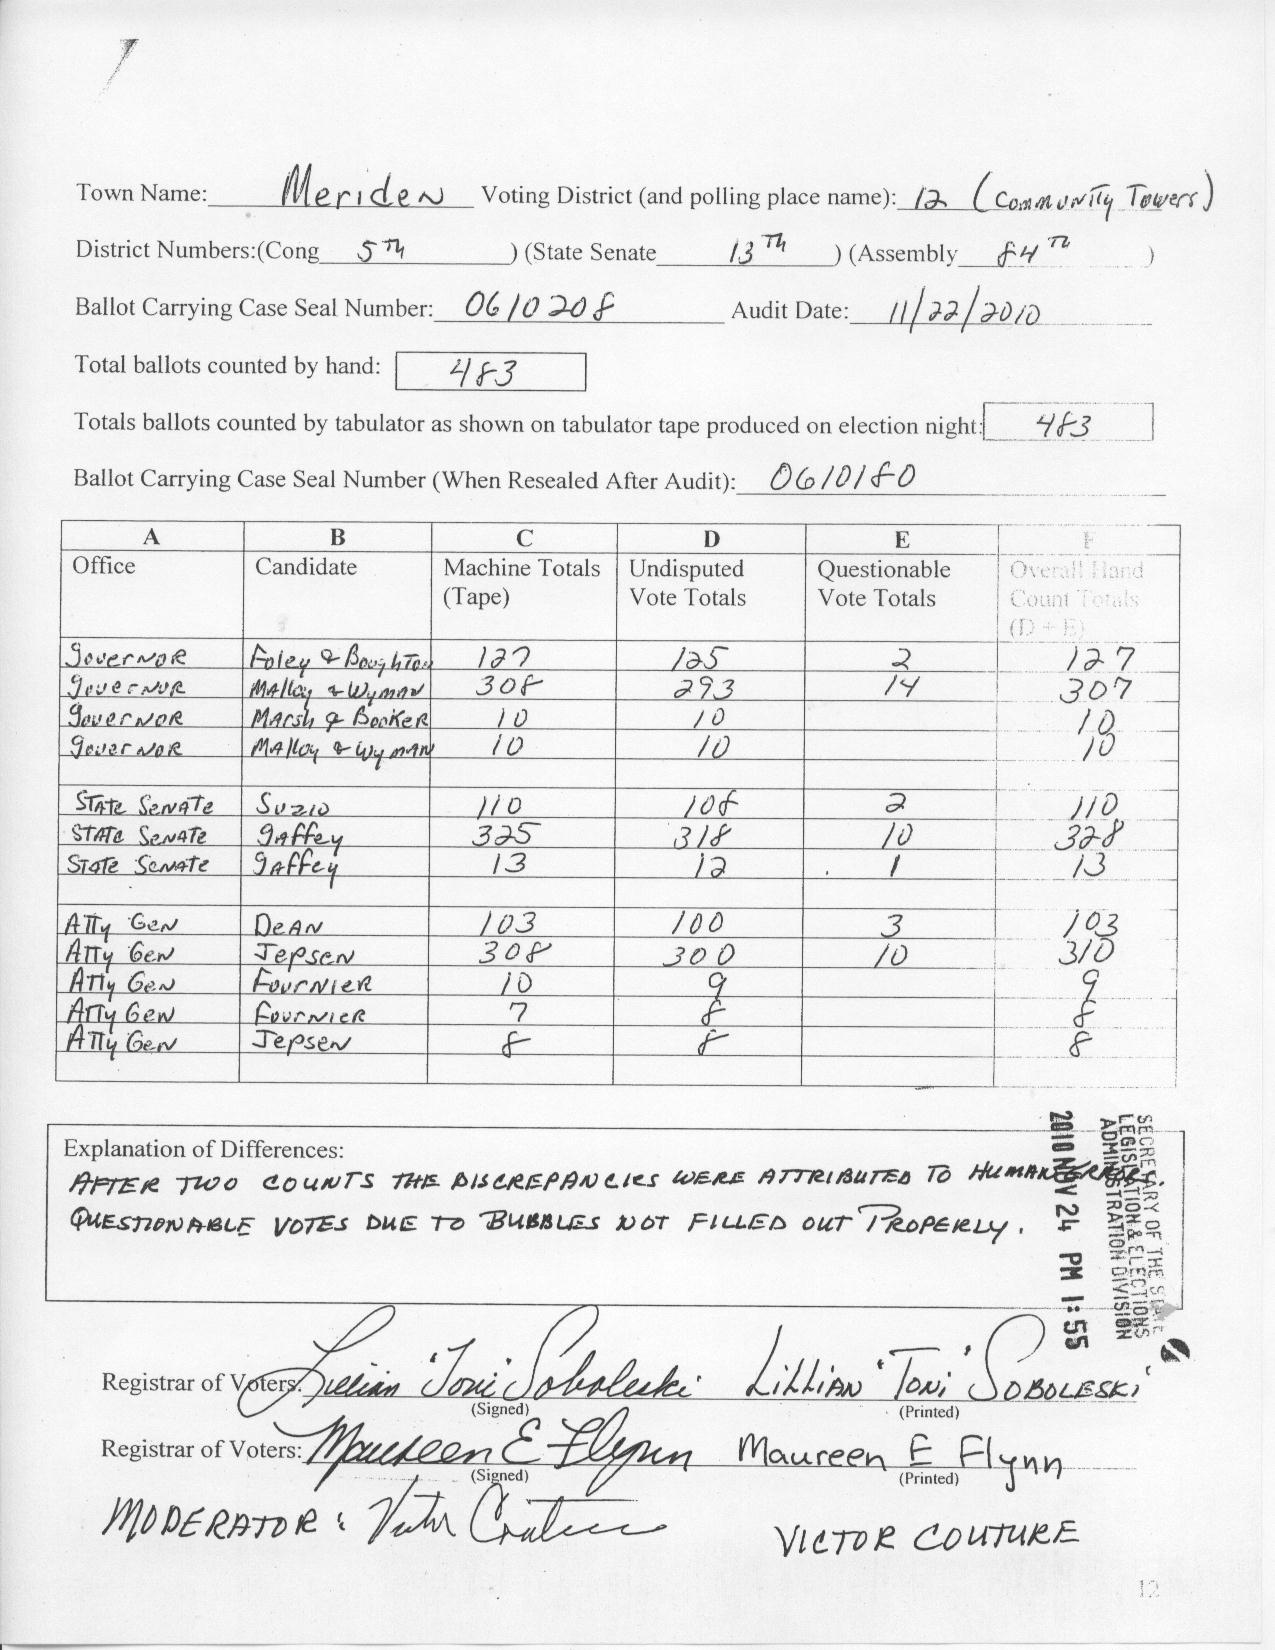 Town Name: Meriden Voting District (and polling place name): 12 (Community Towers)
District Numbers:(Cong 5TH ) (State Senate 13TH ) (Assembly 84TH )
Ballot Carrying Case Seal Number: 0610208 Audit Date: 11/22/2010
Total ballots counted by hand: 483
Totals ballots counted by tabulator as shown on tabulator tape produced on election night: 483
Ballot Carrying Case Seal Number (When Resealed After Audit): 0610180
A B C D E F
Office Candidate Machine Totals Undisputed Questionable Overall Hand
(Tape) Vote Totals Vote Totals Count Totals
(D + E)
Governor Foley & Boughton 127 125 2 127
Governor Malloy & Wyman 308 293 14 307
Governor Marsh & Booker 10 10 10
Governor Malloy & Wyman 10 10 10
State Senate Suzio 110 108 2 110
State Senate Gaffey 325 318 10 328
State Senate Gaffey 13 12 1 13
Atty Gen Dean 103 100 3 103
Atty Gen Jepsen 308 300 10 310
Atty Gen Fournier 10 9 9
Atty Gen Fournier 7 8 8
Atty Gen Jepsen 8 8 8
Explanation of Differences:
AFTER TWO COUNTS THE DISCREPANCIES WERE ATTRIBUTED TO HUMAN ERROR.
QUESTIONABLE VOTES DUE TO BUBBLES NOT FILLED OUT PROPERLY.
SECRETARY OF THE STATE
LEGISLATION & ELECTIONS
ADMINISTRATION DIVISION
2010 NOV 24 PM 1:55
Registrar of Voters: Lillian "Toni" Soboleski LILLIAN "TONI" SOBOLESKI
(Signed) (Printed)
Registrar of Voters: Maureen E Flynn Maureen E Flynn
(Signed) (Printed)
MODERATOR: Victor Couture VICTOR COUTURE
12